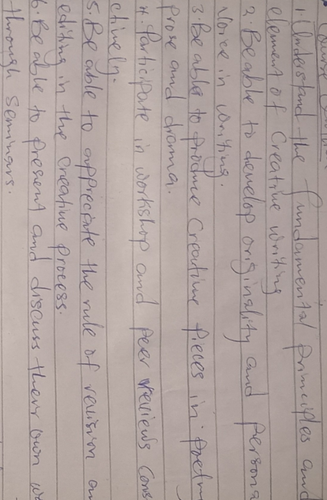 1. Understand the fundamental principles and
element of Creative writing
2. Be able to develop originality and persona
Voice in writing.
3. Be able to produce Creative pieces in poetry
prose and drama.
4. Participate in workshop and peer reviews Cons
ctively.
5. Be able to appreciate the rule of revision an
editing in the Creative process.
6. Be able to present and discuss their own wo
through Seminars.